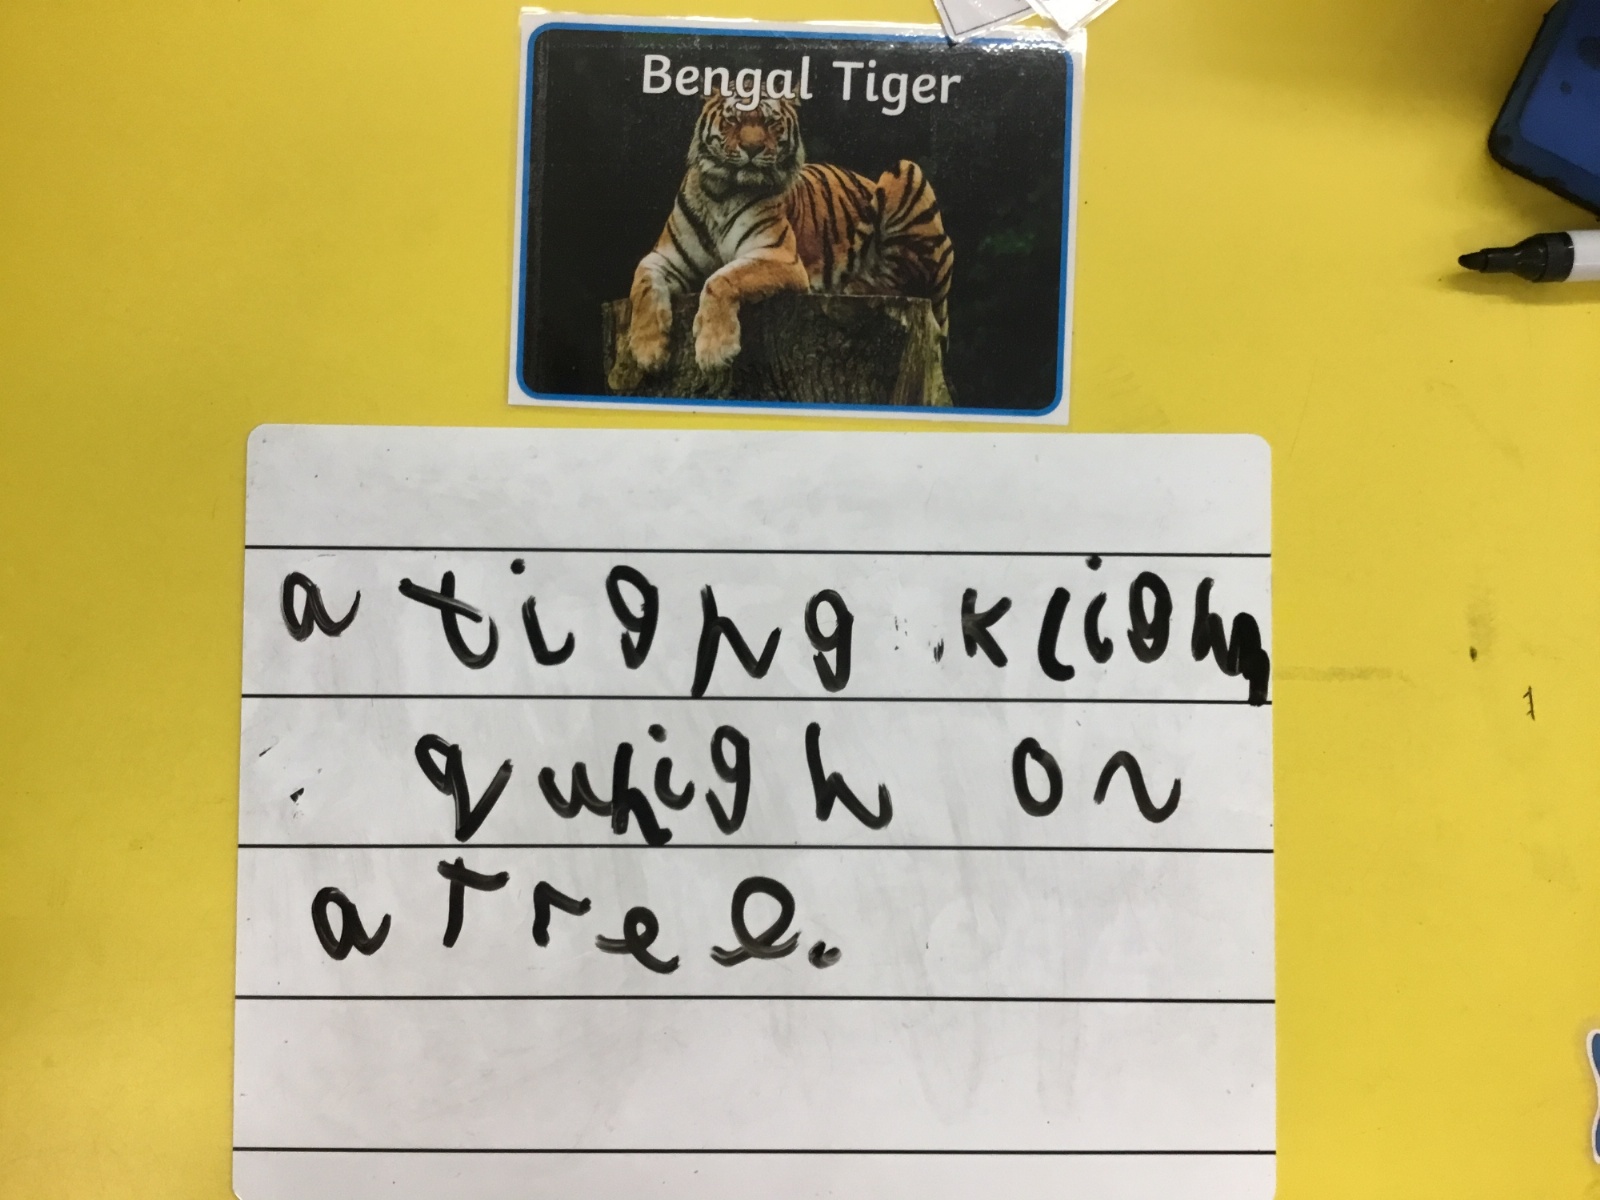 Bengal Tiger
a tighg klighm
quhigh on
a Tree.